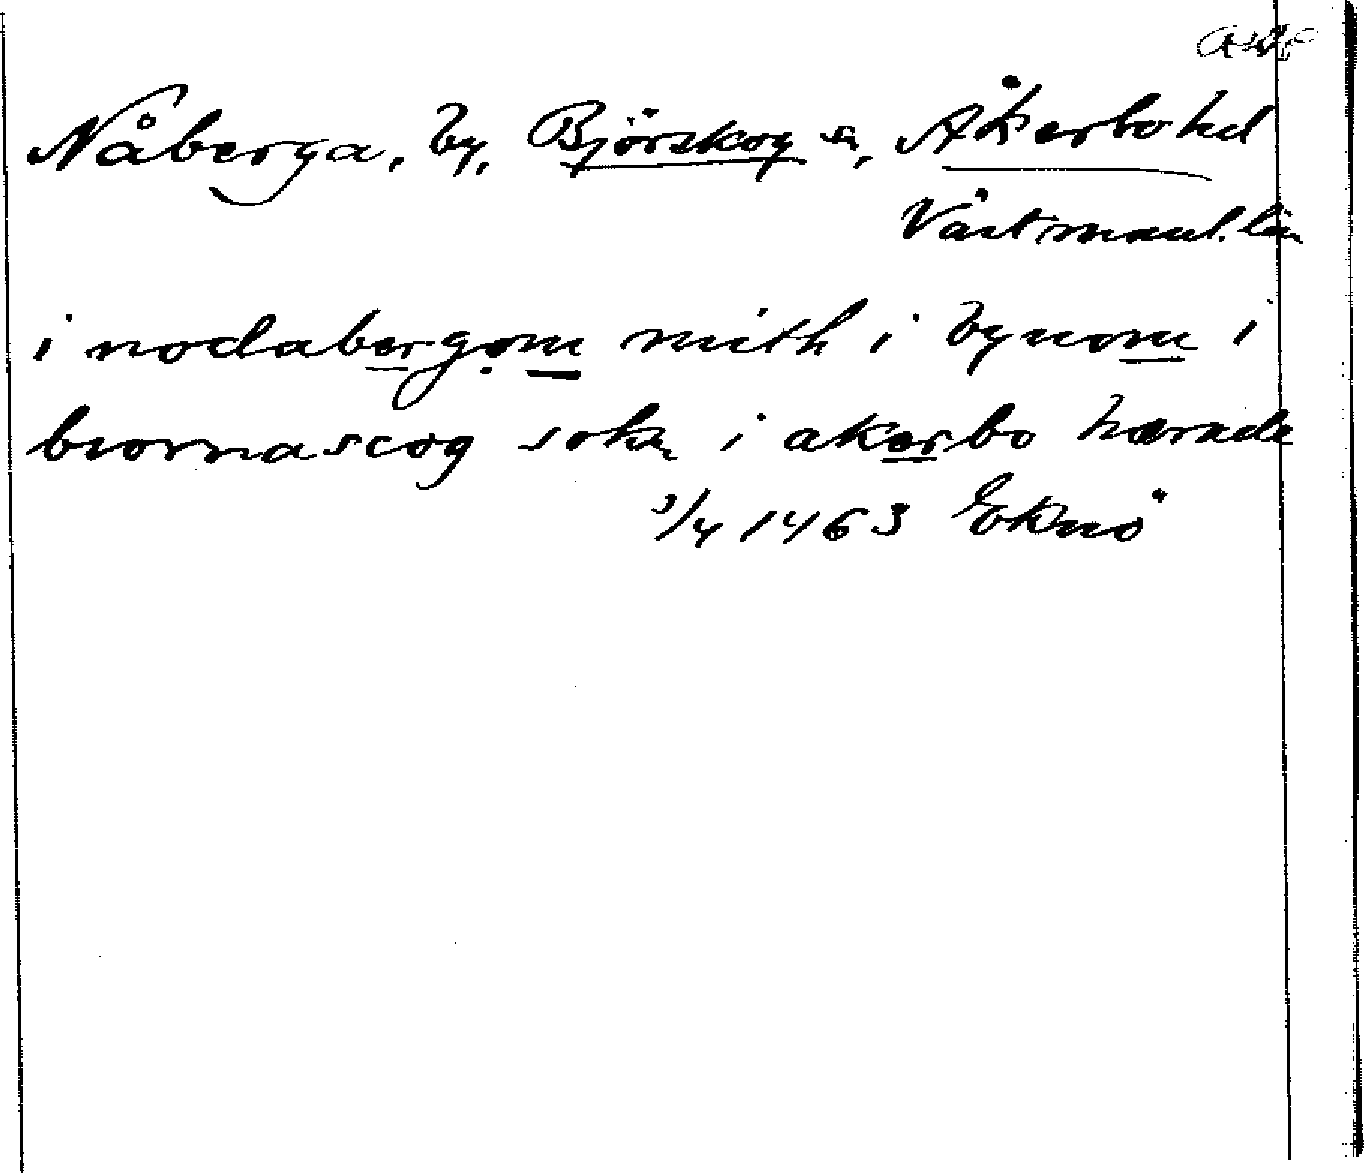 Nåberga, by, Björskog sn, Åkerbo hd
Västmanl. län
i nodabergom mith i bynom i
biornascog sokn i akerbo hærade
3/4 1463 Eknö